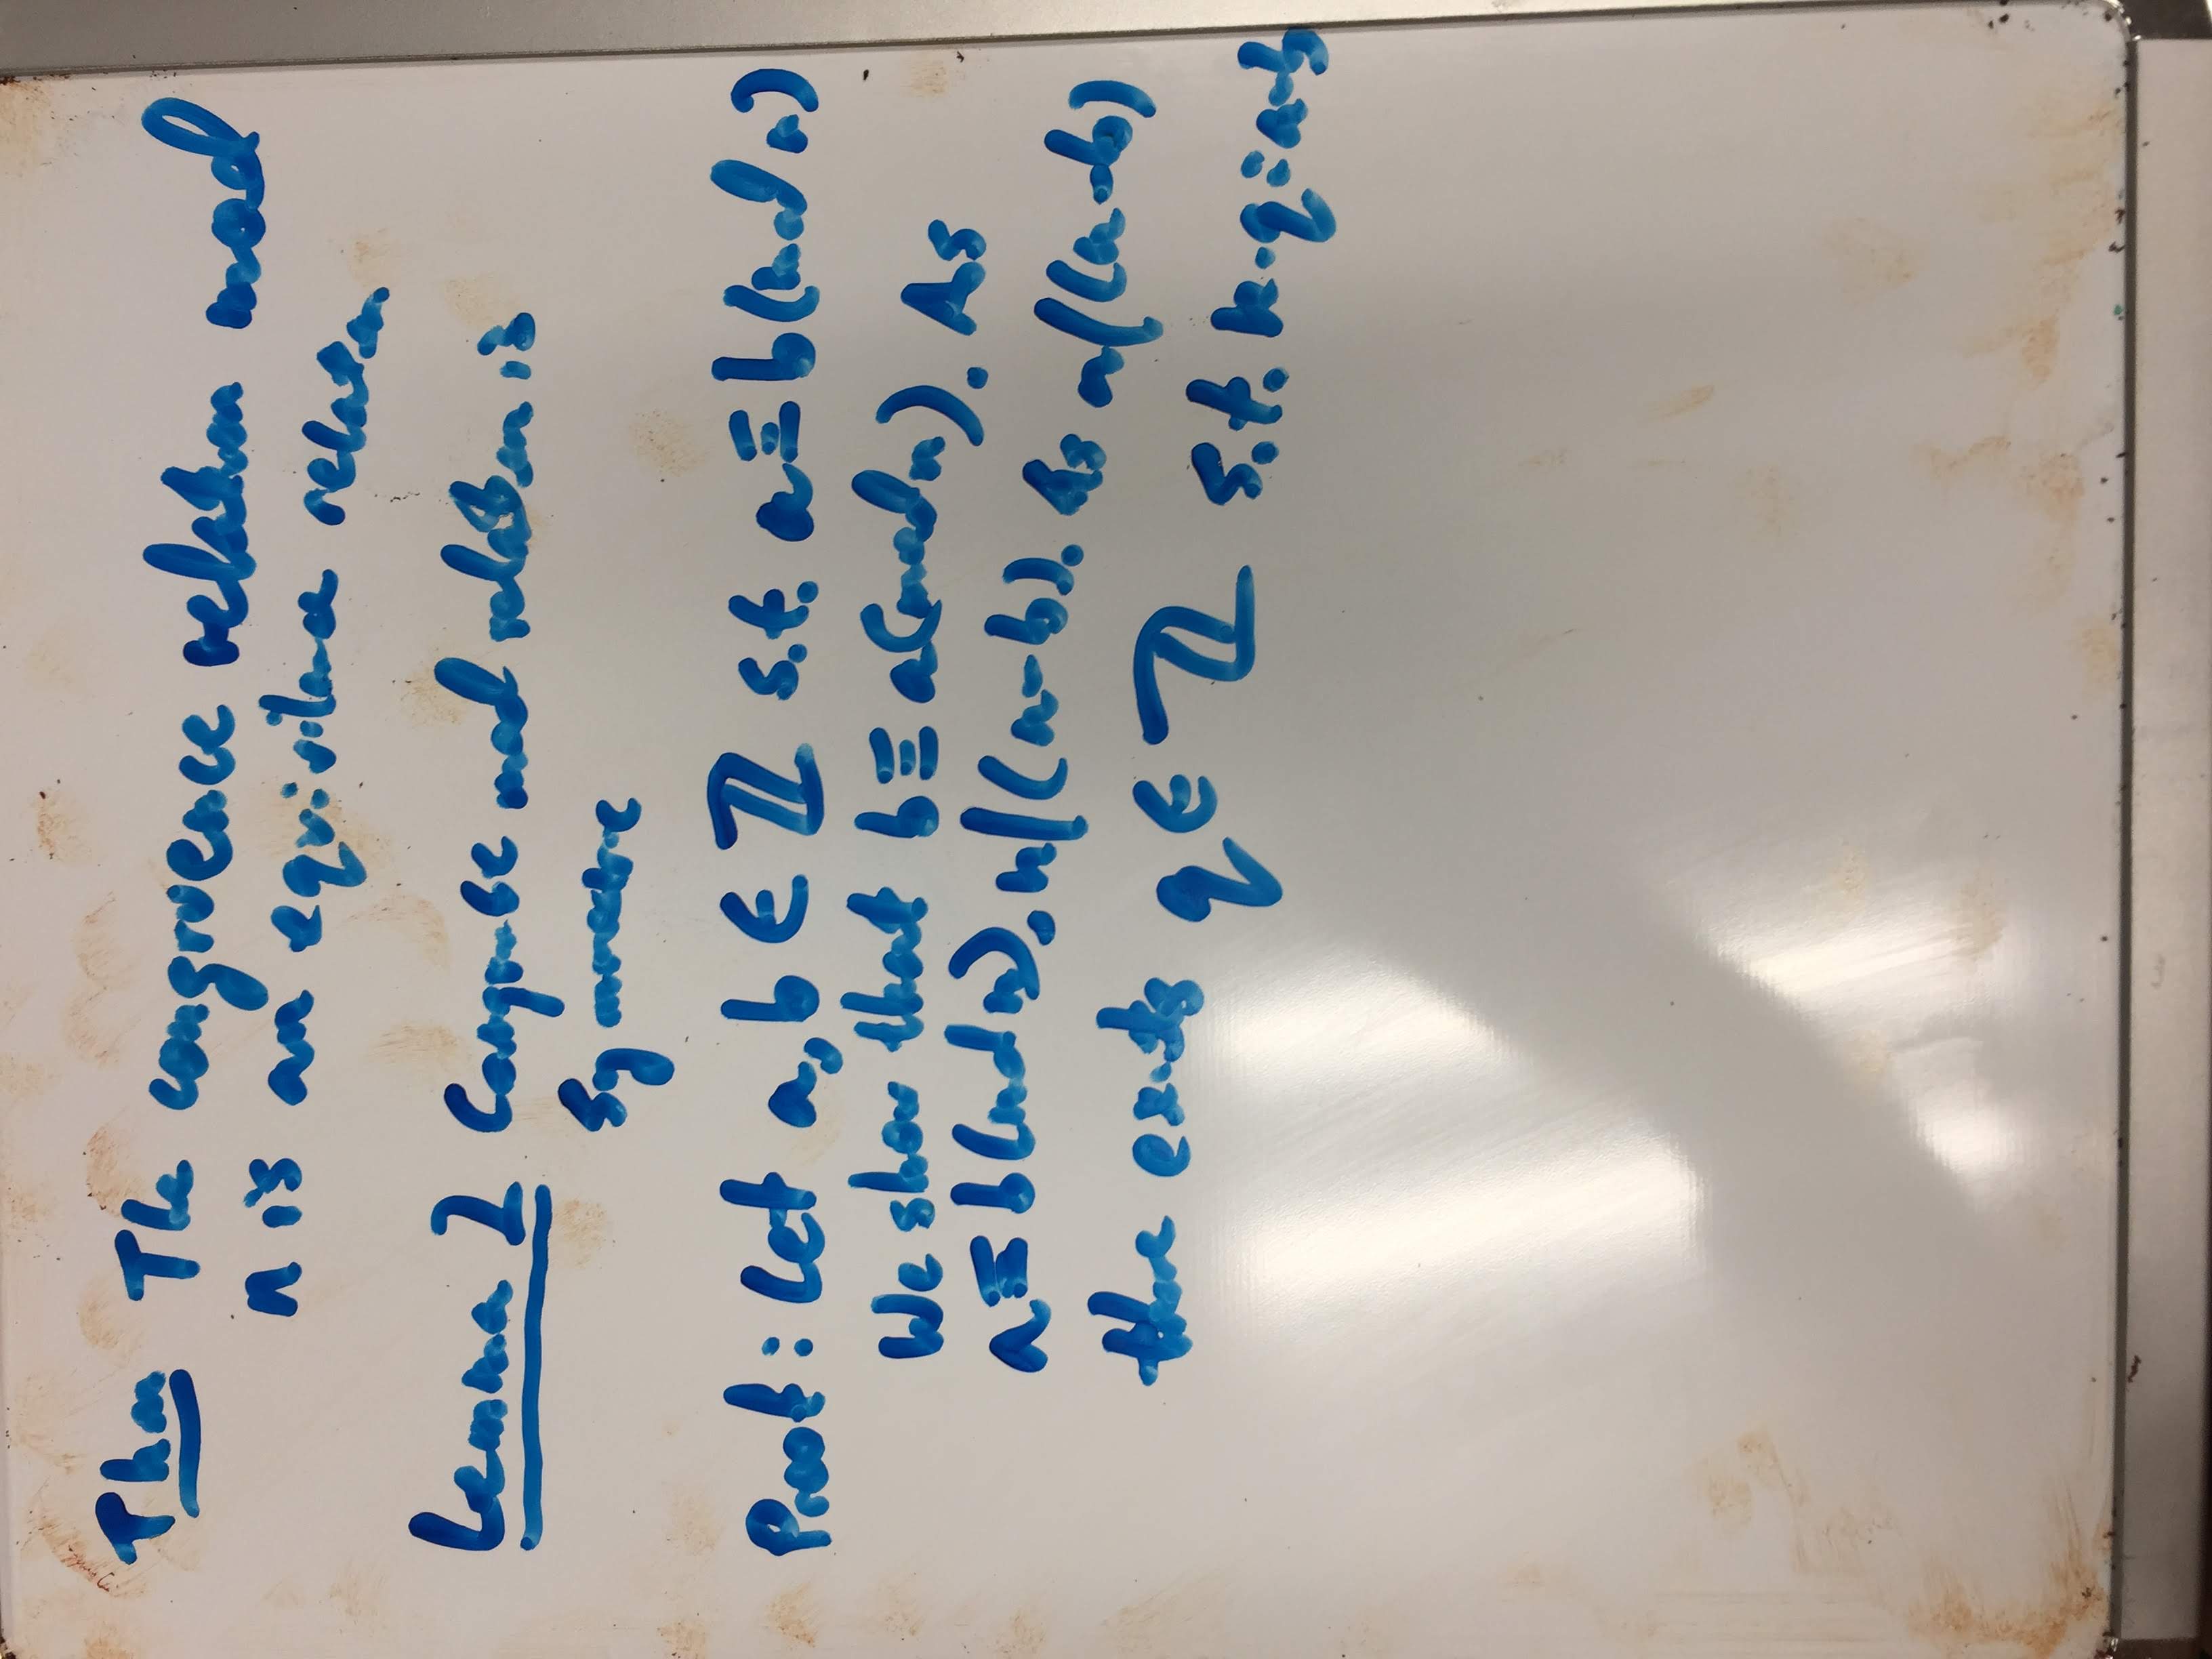 Thm The congruence relation mod
n is an equivilance relation
Lemma 2 Congruence mod relation is
Symmetric
Proof: Let a,b ∈ ℤ s.t. a≡b(mod n)
We show that b≡a(mod n). As
a≡b(mod n), n|(a-b). As n|(a-b)
there exists q∈ℤ s.t. n·q=a-b